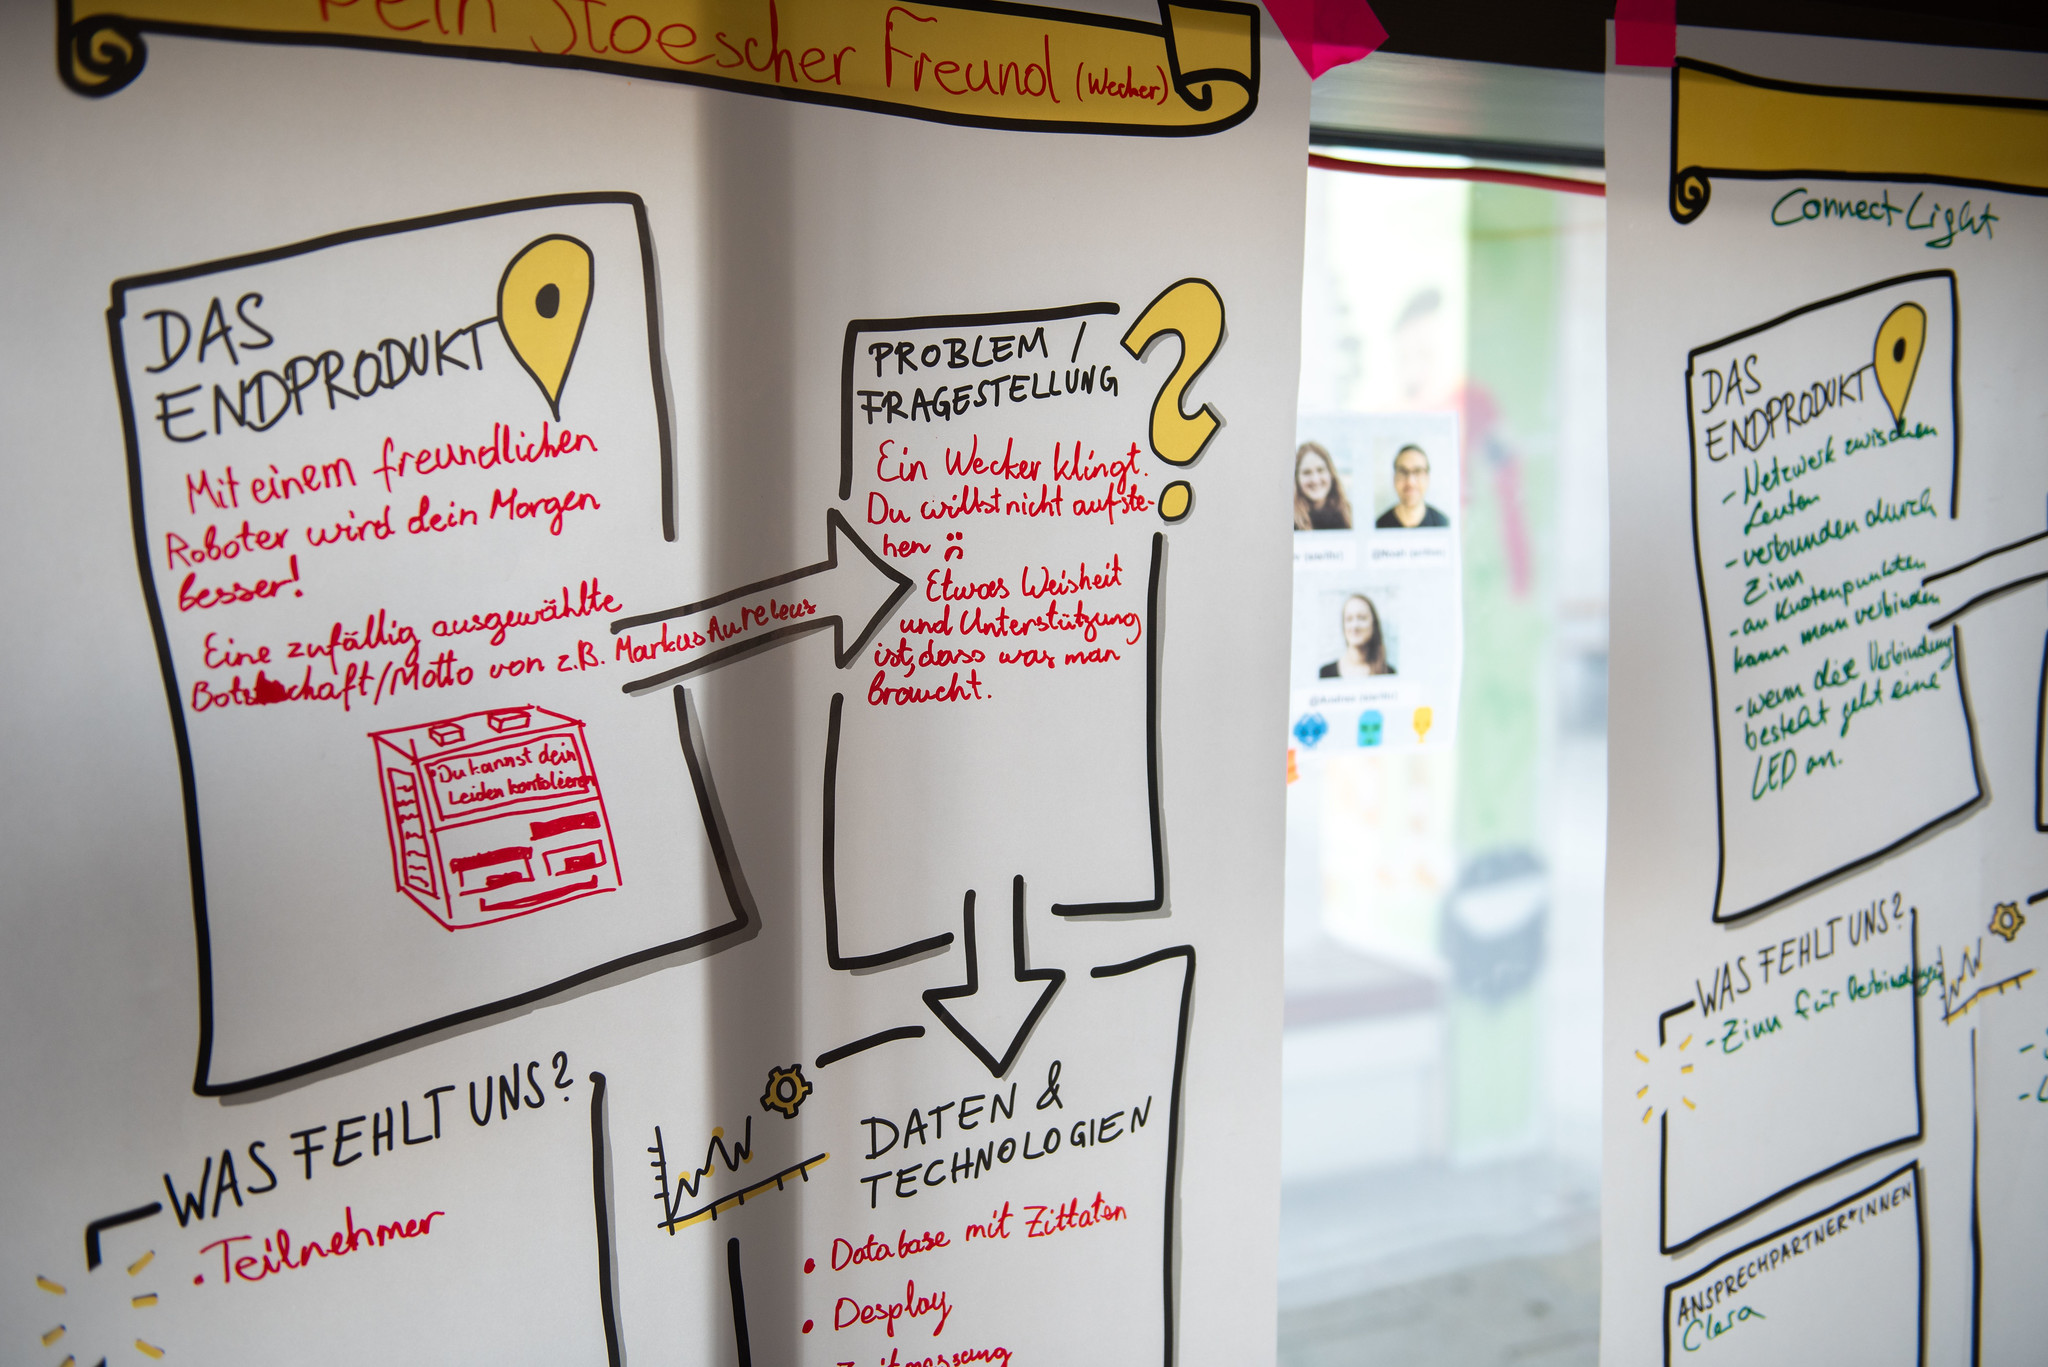 Dein Stoescher Freund (Wecker)
DAS
ENDPRODUKT
Mit einem freundlichen
Roboter wird dein Morgen
besser!
Eine zufällig ausgewählte
Botschaft/Motto von z.B. Markus Aureleus
Du kannst dein
Leiden kontolieren
PROBLEM /
FRAGESTELLUNG
Ein Wecker klingt.
Du willst nicht aufste-
hen
Etwas Weisheit
und Unterstützung
ist, dass was man
braucht.
WAS FEHLT UNS?
• Teilnehmer
DATEN &
TECHNOLOGIEN
• Database mit Zittaten
• Desplay
Zeitmessung
Connect Light
DAS
ENDPRODUKT
- Netzwerk zwischen
Leuten
- verbunden durch
Zinn
- an Knotenpunkten
kann man verbinden
- wenn die Verbindung
besteht geht eine
LED an.
WAS FEHLT UNS?
- Zinn für Verbindungen
ANSPRECHPARTNER*INNEN
Clara